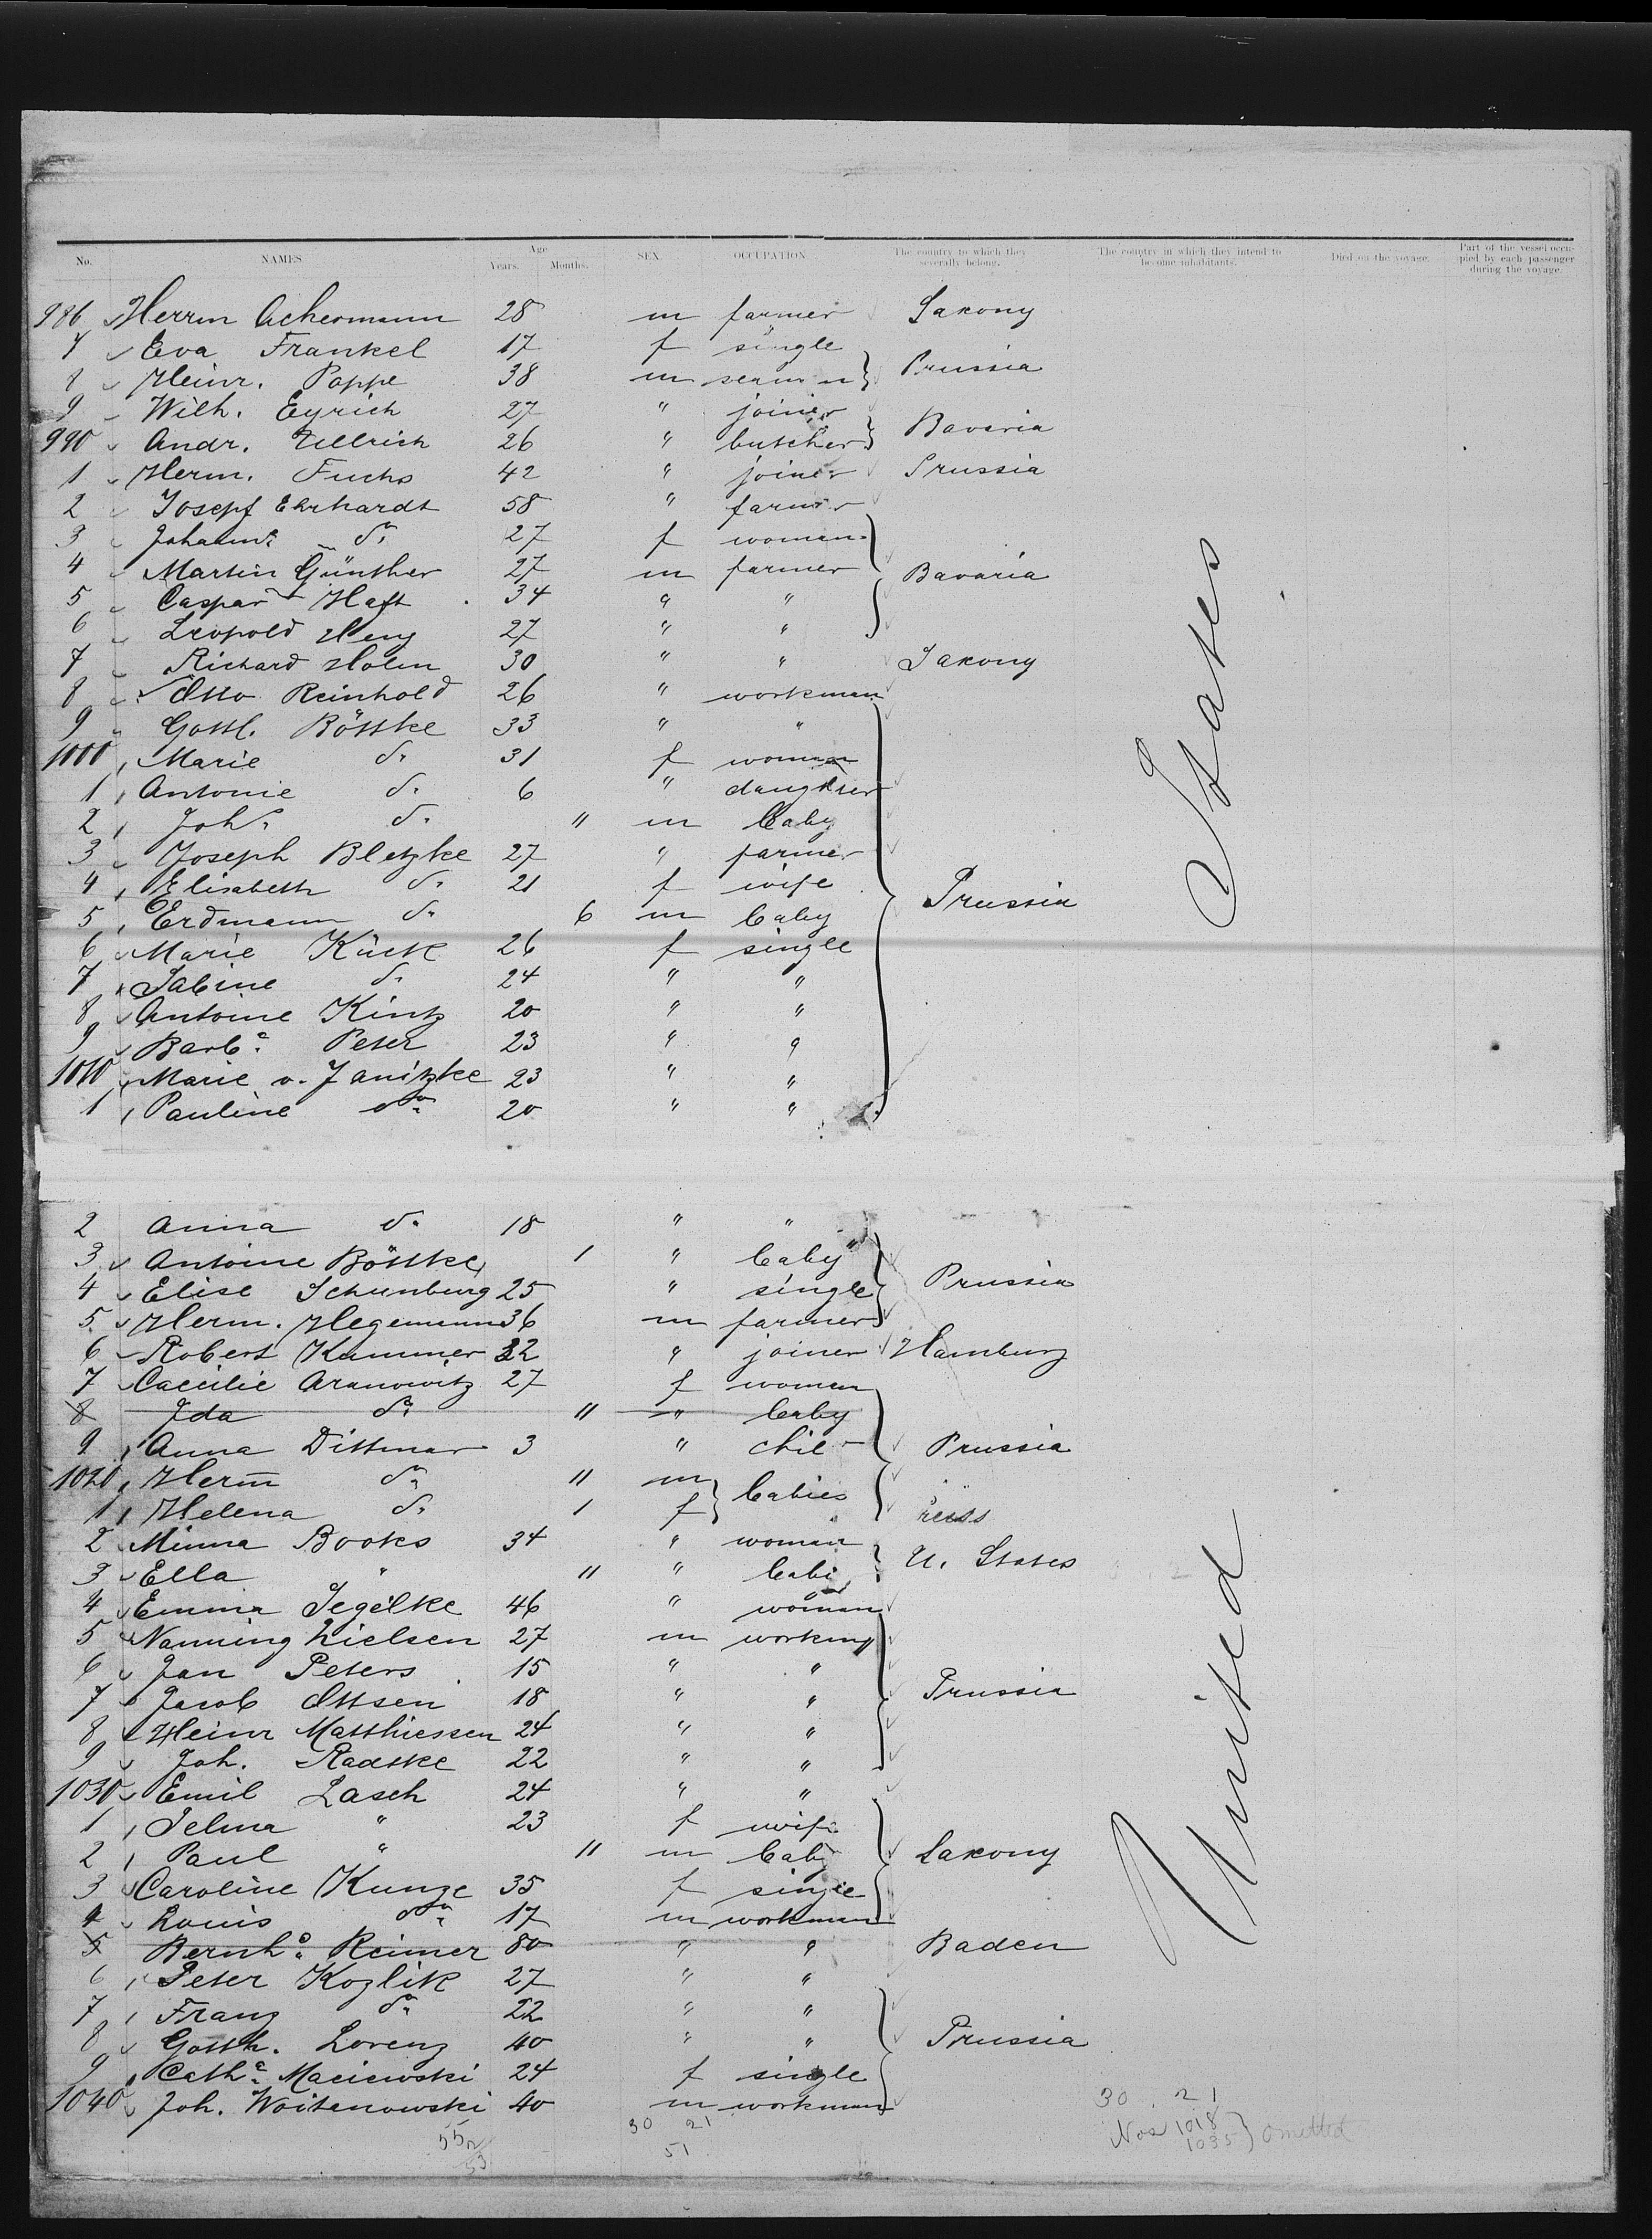 No. NAMES Age Years. Months. SEX OCCUPATION The country to which they severally belong. The country in which they intend to become inhabitants. Died on the voyage. Part of the vessel occupied by each passenger during the voyage.
986 Herrm Achermann 28 m farmer Saxony
7 Eva Frankel 17 f single
8 Heinr. Poppe 38 m Prussia
9 Wilh. Eyrich 27 " joiner
990 Andr. Ullrich 26 " butcher Bavaria
1 Herm. Fuchs 42 " joiner Prussia
2 Josepf Ehrhardt 58 " farmer
3 Johanna do 27 f woman
4 Martin Günther 27 m farmer Bavaria
5 Caspar Haft 34 " "
6 Leopold Heng 27 " "
7 Richard Holm 30 " " Saxony
8 Otto Reinhold 26 " workman
9 Gottl. Böttke 33 " "
1000 Marie do 31 f woman
1 Antonie do 6 " daughter
2 Joh. do 11 m baby
3 Joseph Bletzke 27 " farmer
4 Elisabeth do 21 f wife Prussia
5 Erdmann do 6 m baby
6 Marie Kück 26 f single
7 Sabine do 24 " "
8 Antoine Kintz 20 " "
9 Barba. Peter 23 " "
1010 Marie v. Janitzke 23 " "
1 Pauline do 20 " "
2 Anna do 18 " "
3 Antoine Böttke 1 " baby
4 Elise Schunburg 25 " single Prussia
5 Herm. Hegemann 36 m farmer
6 Robert Kummer 32 " joiner Hamburg
7 Caecilie Aranowitz 27 f woman
8 Ida do 11 " baby
9 Anna Dittmar 3 " Prussia
1020 Herm do 11 m babies
1 Helena do 1 f reuss
2 Minna Books 34 " woman U. States
3 Ella " 11 "
4 Emma Segelke 46 " woman
5 Nanning Nielsen 27 m
6 Jan Peters 15 " "
7 Jacob Ottsen 18 " " Prussia
8 Heinr Matthiessen 24 " "
9 Joh. Radtke 22 " "
1030 Emil Lasch 24 " "
1 Selma " 23 f wife
2 Paul " 11 m baby Saxony
3 Caroline Kunze 35 f single
4 Louis do 17 m workman
5 Bernhd. Reimer 80 " " Baden
6 Peter Kozlik 27 " "
7 Franz do 22 " "
8 Gotth. Lorenz 40 " " Prussia
9 Catha. Maciewski 24 f single
1040 Joh. Woitenowski 40 m workman
United States
30 21
51
30 21
Nos 1018
1035 } omitted